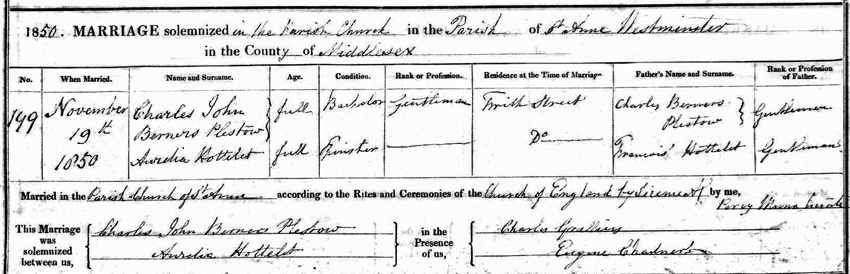 1850. MARRIAGE solemnized in the Parish Church in the Parish of St Anne Westminster
in the County of Middlesex
No. When Married. Name and Surname. Age. Condition. Rank or Profession. Residence at the Time of Marriage Father's Name and Surname. Rank or Profession of Father.
199 November 19th 1850 Charles John Berners Plestow full Bachelor Gentleman Frith Street Charles Berners Plestow Gentleman
Aurelia Hottelet full Spinster Do Francois Hottelet Gentleman
Married in the Parish Church of St Anne according to the Rites and Ceremonies of the Church of England by by me, Percy Curate
This Marriage was solemnized between us, Charles John Berners Plestow in the Presence of us, Charles
Aurelia Hottelet Eugene